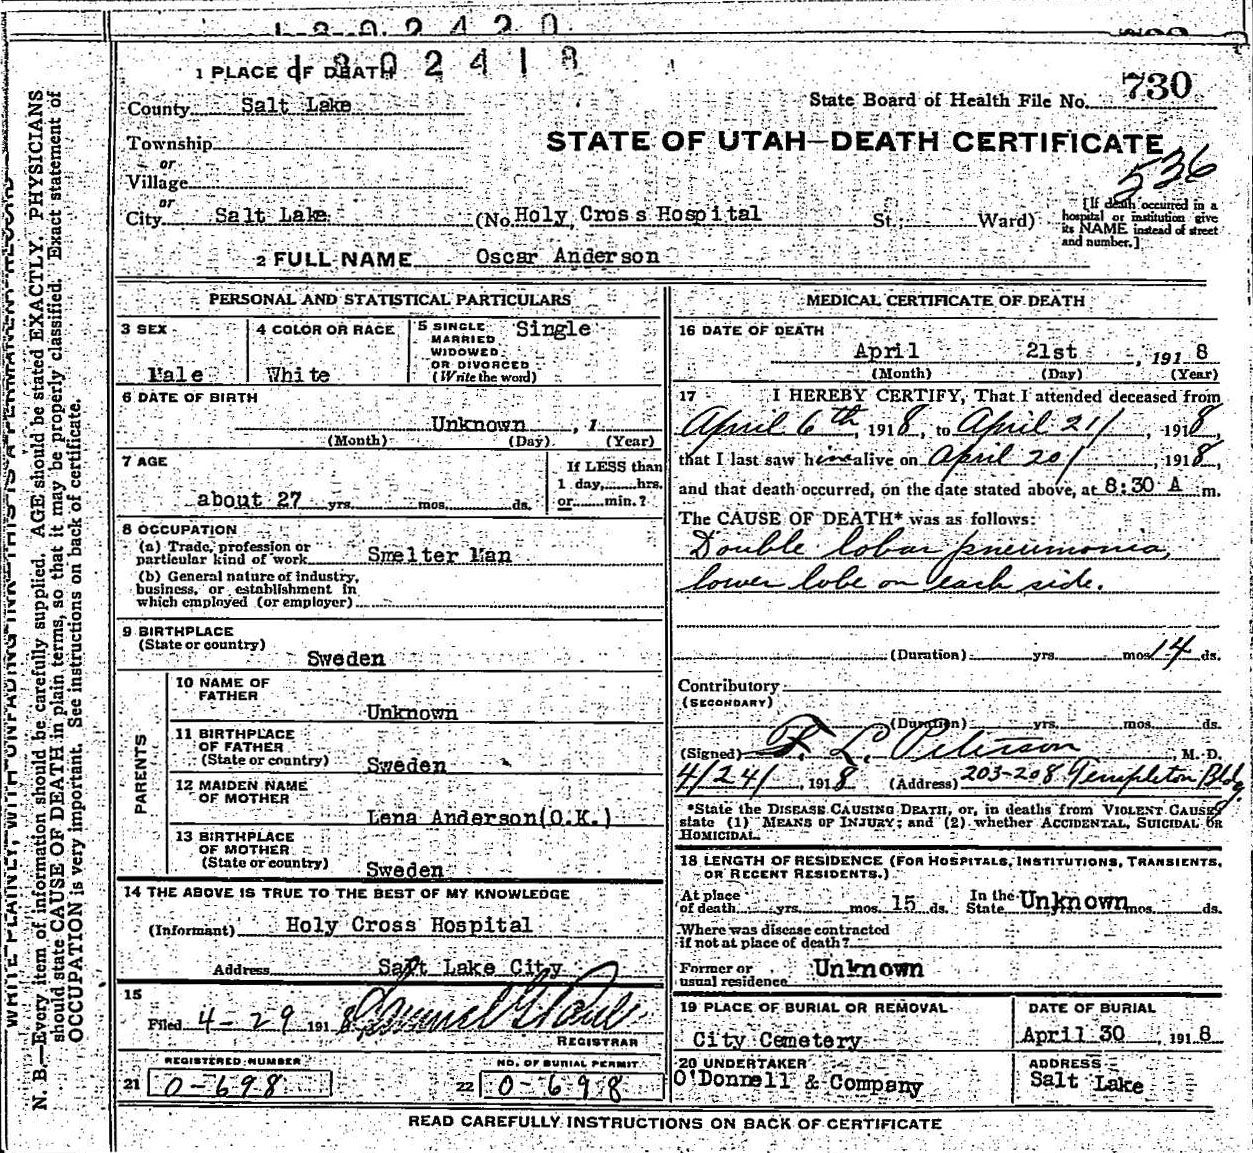 1302420
1302418
1 PLACE OF DEATH
County Salt Lake
State Board of Health File No. 730
STATE OF UTAH—DEATH CERTIFICATE
536
Township
or
Village
or
City Salt Lake (No. Holy Cross Hospital St.; Ward)
[If death occurred in a
hospital or institution give
its NAME instead of street
and number.]
2 FULL NAME Oscar Anderson
PERSONAL AND STATISTICAL PARTICULARS
3 SEX
Male
4 COLOR OR RACE
White
5 SINGLE
MARRIED
WIDOWED
OR DIVORCED
(Write the word)
Single
6 DATE OF BIRTH
Unknown , 1
(Month) (Day) (Year)
7 AGE
about 27 yrs. mos. ds.
If LESS than
1 day, hrs.
or min.?
8 OCCUPATION
(a) Trade, profession or
particular kind of work Smelter Man
(b) General nature of industry,
business, or establishment in
which employed (or employer)
9 BIRTHPLACE
(State or country)
Sweden
PARENTS
10 NAME OF
FATHER
Unknown
11 BIRTHPLACE
OF FATHER
(State or country) Sweden
12 MAIDEN NAME
OF MOTHER
Lena Anderson(O.K.)
13 BIRTHPLACE
OF MOTHER
(State or country) Sweden
14 THE ABOVE IS TRUE TO THE BEST OF MY KNOWLEDGE
(Informant) Holy Cross Hospital
Address Salt Lake City
15
Filed 4-29 1918
REGISTRAR
REGISTERED NUMBER
21 0-698
NO. OF BURIAL PERMIT
22 0-698
MEDICAL CERTIFICATE OF DEATH
16 DATE OF DEATH
April 21st , 1918
(Month) (Day) (Year)
17 I HEREBY CERTIFY, That I attended deceased from
April 6th, 1918, to April 21/, 1918,
that I last saw him alive on April 20/, 1918,
and that death occurred, on the date stated above, at 8:30 A m.
The CAUSE OF DEATH* was as follows:
Double lobar pneumonia,
lower lobe on each side.
(Duration) yrs. mos. 14 ds.
Contributory
(SECONDARY)
(Duration) yrs. mos. ds.
(Signed) F. L. Peterson, M. D.
4/24/, 1918 (Address) 203-208 Templeton Bldg.
*State the DISEASE CAUSING DEATH, or, in deaths from VIOLENT CAUSES
state (1) MEANS OF INJURY; and (2) whether ACCIDENTAL, SUICIDAL OR
HOMICIDAL.
18 LENGTH OF RESIDENCE (FOR HOSPITALS, INSTITUTIONS, TRANSIENTS,
OR RECENT RESIDENTS.)
At place
of death yrs. mos. 15 ds.
In the
State Unknown mos. ds.
Where was disease contracted
if not at place of death?
Former or
usual residence Unknown
19 PLACE OF BURIAL OR REMOVAL
City Cemetery
DATE OF BURIAL
April 30 , 1918
20 UNDERTAKER
O'Donnell & Company
ADDRESS
Salt Lake
READ CAREFULLY INSTRUCTIONS ON BACK OF CERTIFICATE
WRITE PLAINLY, WITH UNFADING INK—THIS IS A PERMANENT RECORD
N. B.—Every item of information should be carefully supplied. AGE should be stated EXACTLY, PHYSICIANS
should state CAUSE OF DEATH in plain terms, so that it may be properly classified. Exact statement of
OCCUPATION is very important. See instructions on back of certificate.